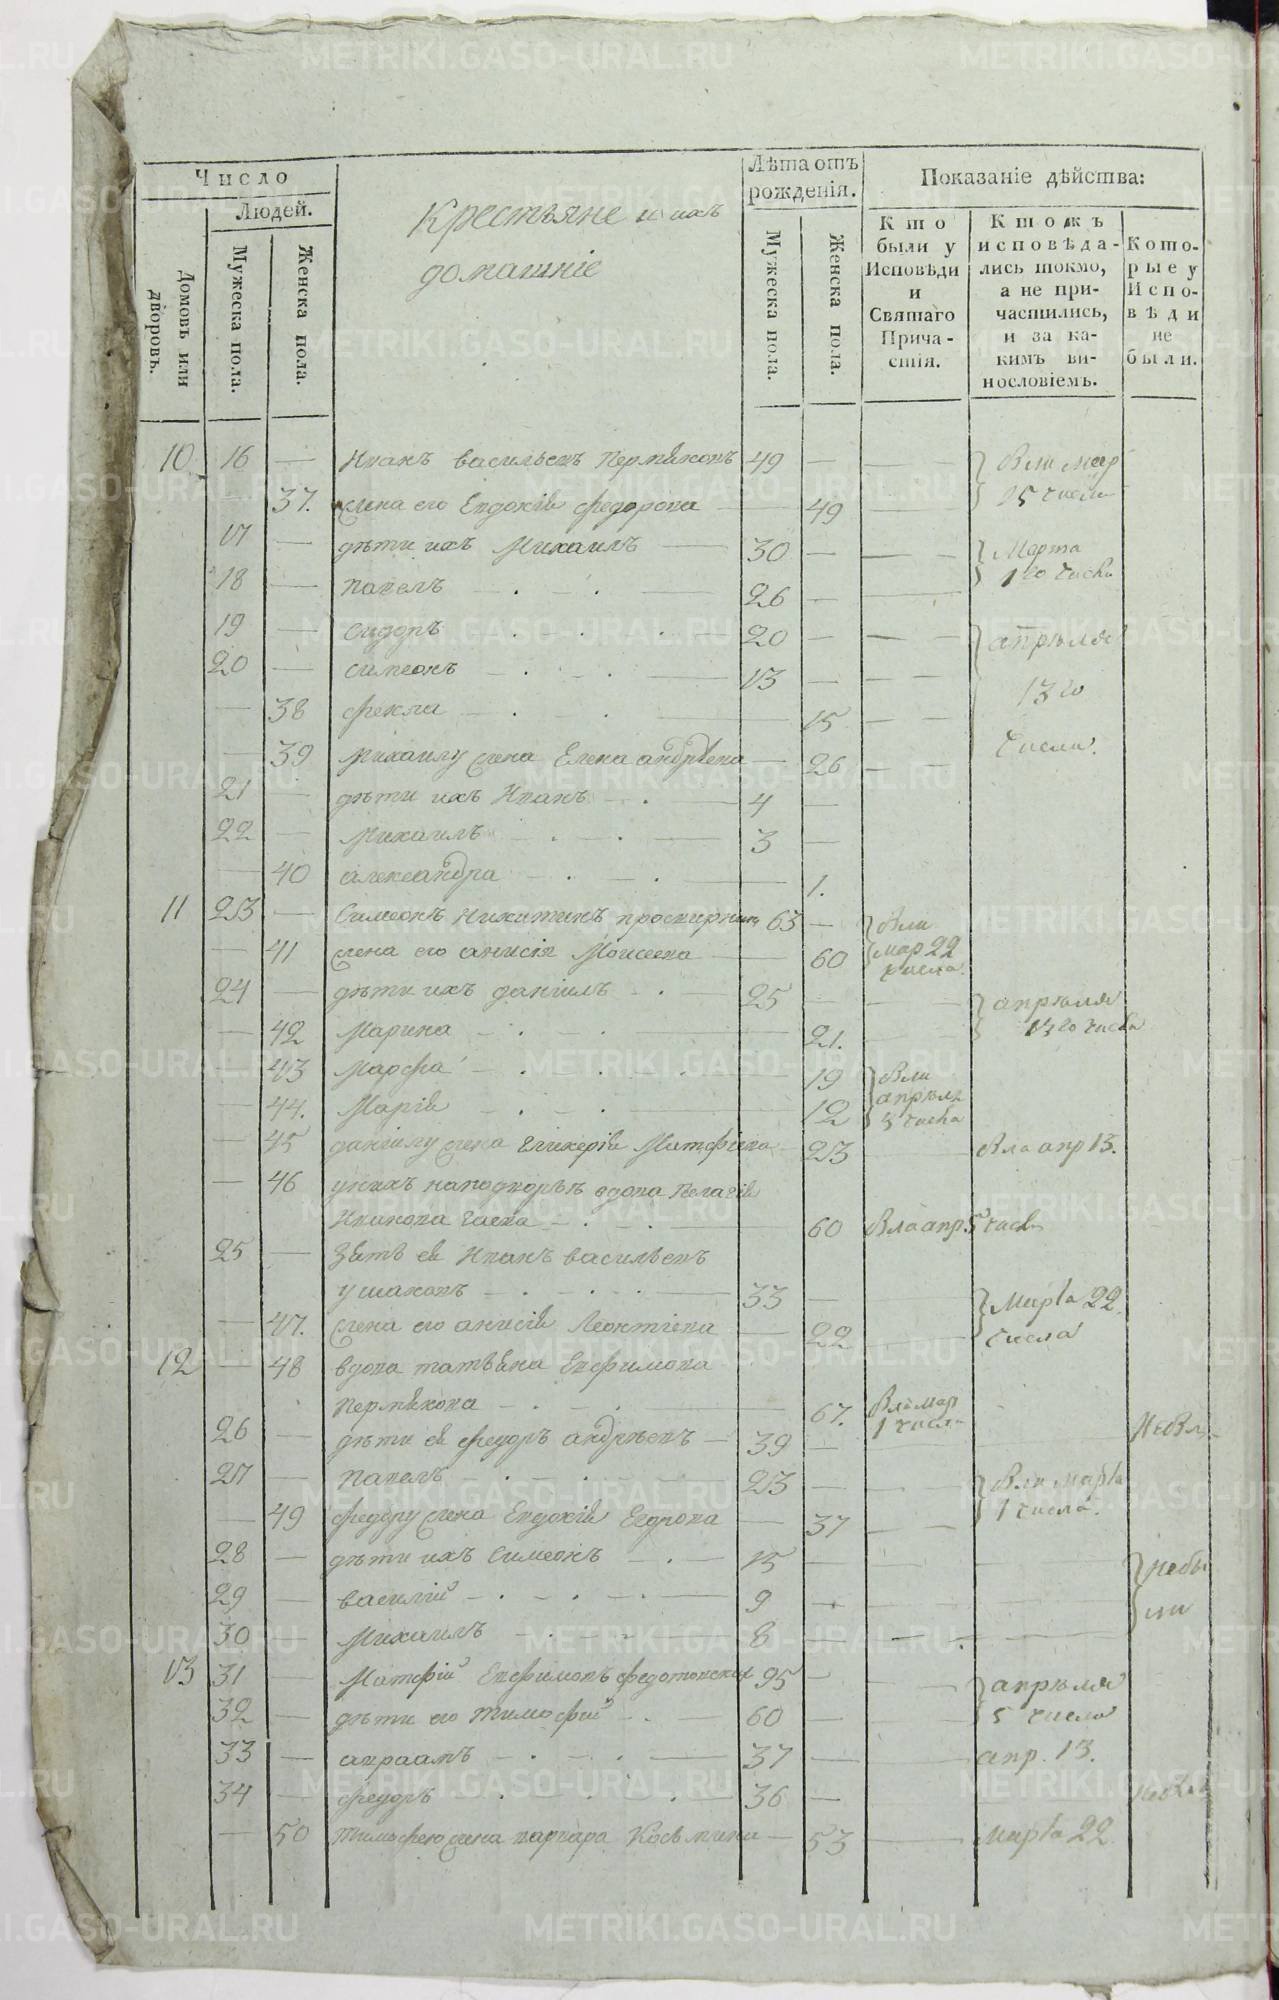 Число
Людей.
Домовъ или дворовъ.
Мужеска пола.
Женска пола.
Крестьяне и ихъ
домашніе
Лѣта отъ рожденія.
Мужеска пола.
Женска пола.
Показаніе дѣйства:
Кто были у Исповѣди и Святаго Причастія.
Ктожъ исповѣдались токмо, а не причастились, и за какимъ винословіемъ.
Которые у Исповѣди не были.
10 16 — Иванъ васильевъ Пермяковъ 49 — — — были мар
— 37. жена его Евдокія федорова — 49 — — 15 числа
17 — дѣти ихъ Михаилъ — 30 — — — Марта
18 — Павелъ — 26 — — 1го числа
19 — Сидоръ — 20 — — — апрѣля
20 — Симеонъ — 13 — — — 13го
— 38 фекла — 15 — —
— 39 Михаилу жена Елена андрѣева — 26 — — числа.
21 — дѣти ихъ Иванъ — 4 —
22 — Михаилъ — 3 —
— 40 александра — 1.
11 23 — Симеонъ Никитинъ 63 — Были
— 41 жена его анисія Моисеева — 60 мар 22 числа
24 — дѣти ихъ даніилъ — 25 — — — апрѣля
— 42 Марина — 21. — — 13го числа
— 43 Марфа — 19 были
— 44. Марія — 12 апрѣля 5 числа
— 45 даніилу жена Гликерія Матфѣева — 23 — была апр 13.
— 46 у нихъ на подворьѣ вдова Пелагія
Иванова — 60 Была апр. 5 числ
25 — Зять ея Иванъ васильевъ
ушаковъ — 33 — — Марта 22.
— 47. жена его анисія Леонтіева — 22 — числа
12 — 48 вдова татьяна Евфимова
Пермякова — 67. Была мар 1 числа
26 — дѣти ея федоръ андрѣевъ — 39 — — — Не был
27 — Павелъ — 23 — — Были марта
— 49 федору жена Евдокія Егорова — 37 — — 1 числа.
28 — дѣти ихъ Симеонъ — 15 — — — не бы
29 — василій — 9 — — — ли
30 — Михаилъ — 8 — — —
13 31 — Матфій Евфимовъ федотовскихъ 95 — — апрѣля
32 — дѣти его тимофій — 60 — — 5 числа
33 — авраамъ — 37 — — апр. 13.
34 — федоръ — 36 — не был
— 50 Тимофею жена варвара Козьмина — 53 — Марта 22
METRIKI.GASO-URAL.RU